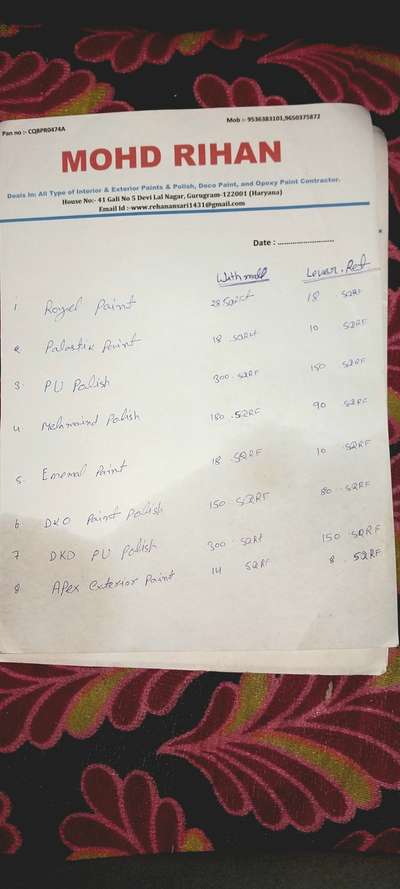 Pan no :- CQBPR0474A
Mob :- 9536383101,9650375872
MOHD RIHAN
Deals In: All Type of Interior & Exterior Paints & Polish, Deco Paint, and Opoxy Paint Contractor.
House No:- 41 Gali No 5 Devi Lal Nagar, Gurugram-122001 (Haryana)
Email Id :-www.rehanansari1431@gmail.com
Date : ........................
Lever. Ret
1 Royel Paint 28 SQRFt 18 SQRF
2 Palastik Paint 18 .SQRFt 10 SQRF
3. PU Polish 300. SQRF 150 SQRF
4 Polish 180 .SQRF 90 SQRF
5. Paint 18 .SQRF 10 .SQRF
6 DKO Paint Polish 150 .SQRF 80 .SQRF
7 DKO PU Polish 300 .SQRF 150 SQRF
8 Apex Exterior Paint 14 SQRF 8 .SQRF